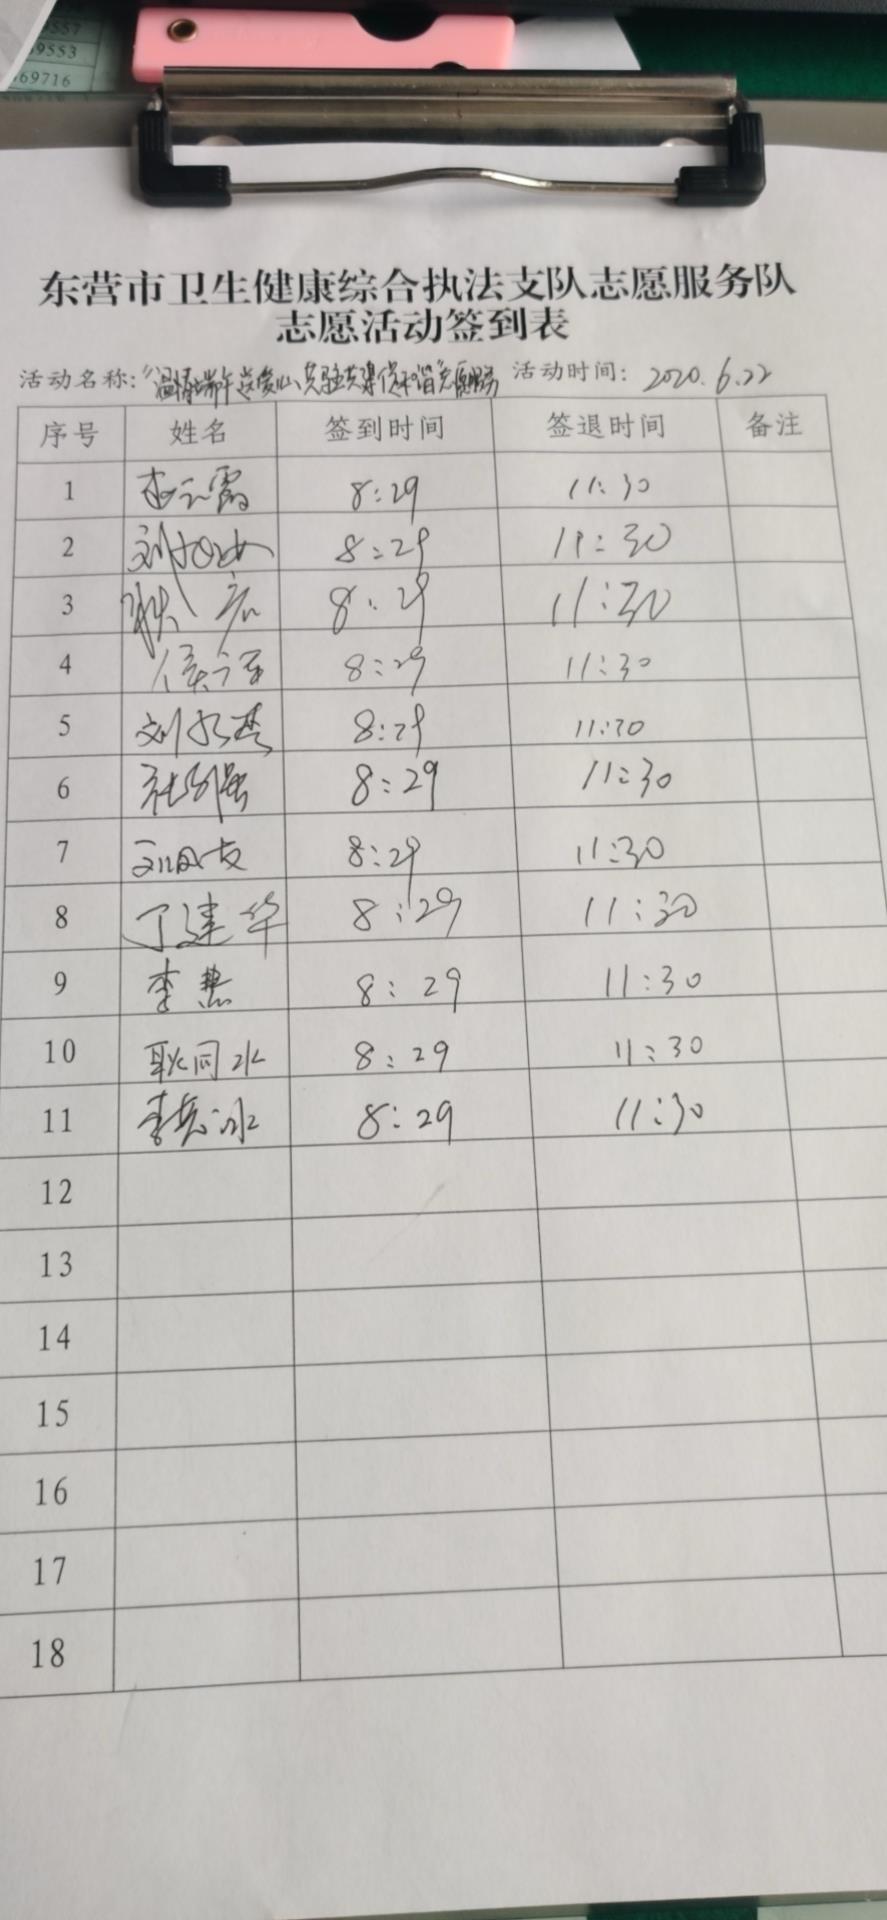 557
9553
69716
东营市卫生健康综合执法支队志愿服务队
志愿活动签到表
活动名称：“温情端午送爱心、共驻共建促和谐”志愿服务 活动时间：2020.6.22
序号 姓名 签到时间 签退时间 备注
1 8:29 11:30
2 刘 8:29 11:30
3 8:29 11:30
4 侯 8:29 11:30
5 刘 8:29 11:30
6 8:29 11:30
7 8:29 11:30
8 丁建华 8:29 11:30
9 李慧 8:29 11:30
10 耿同水 8:29 11:30
11 李 冰 8:29 11:30
12
13
14
15
16
17
18